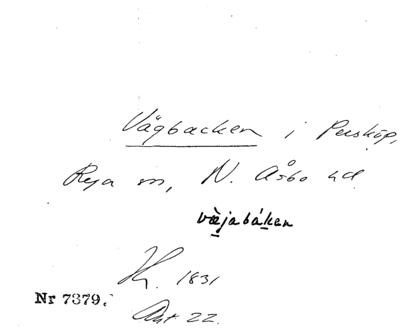 Vägbacken i Perskôp,
Rya sn, N. Åsbo hd
väjabáken
H. 1831
Nr 7379.
Akt 22.